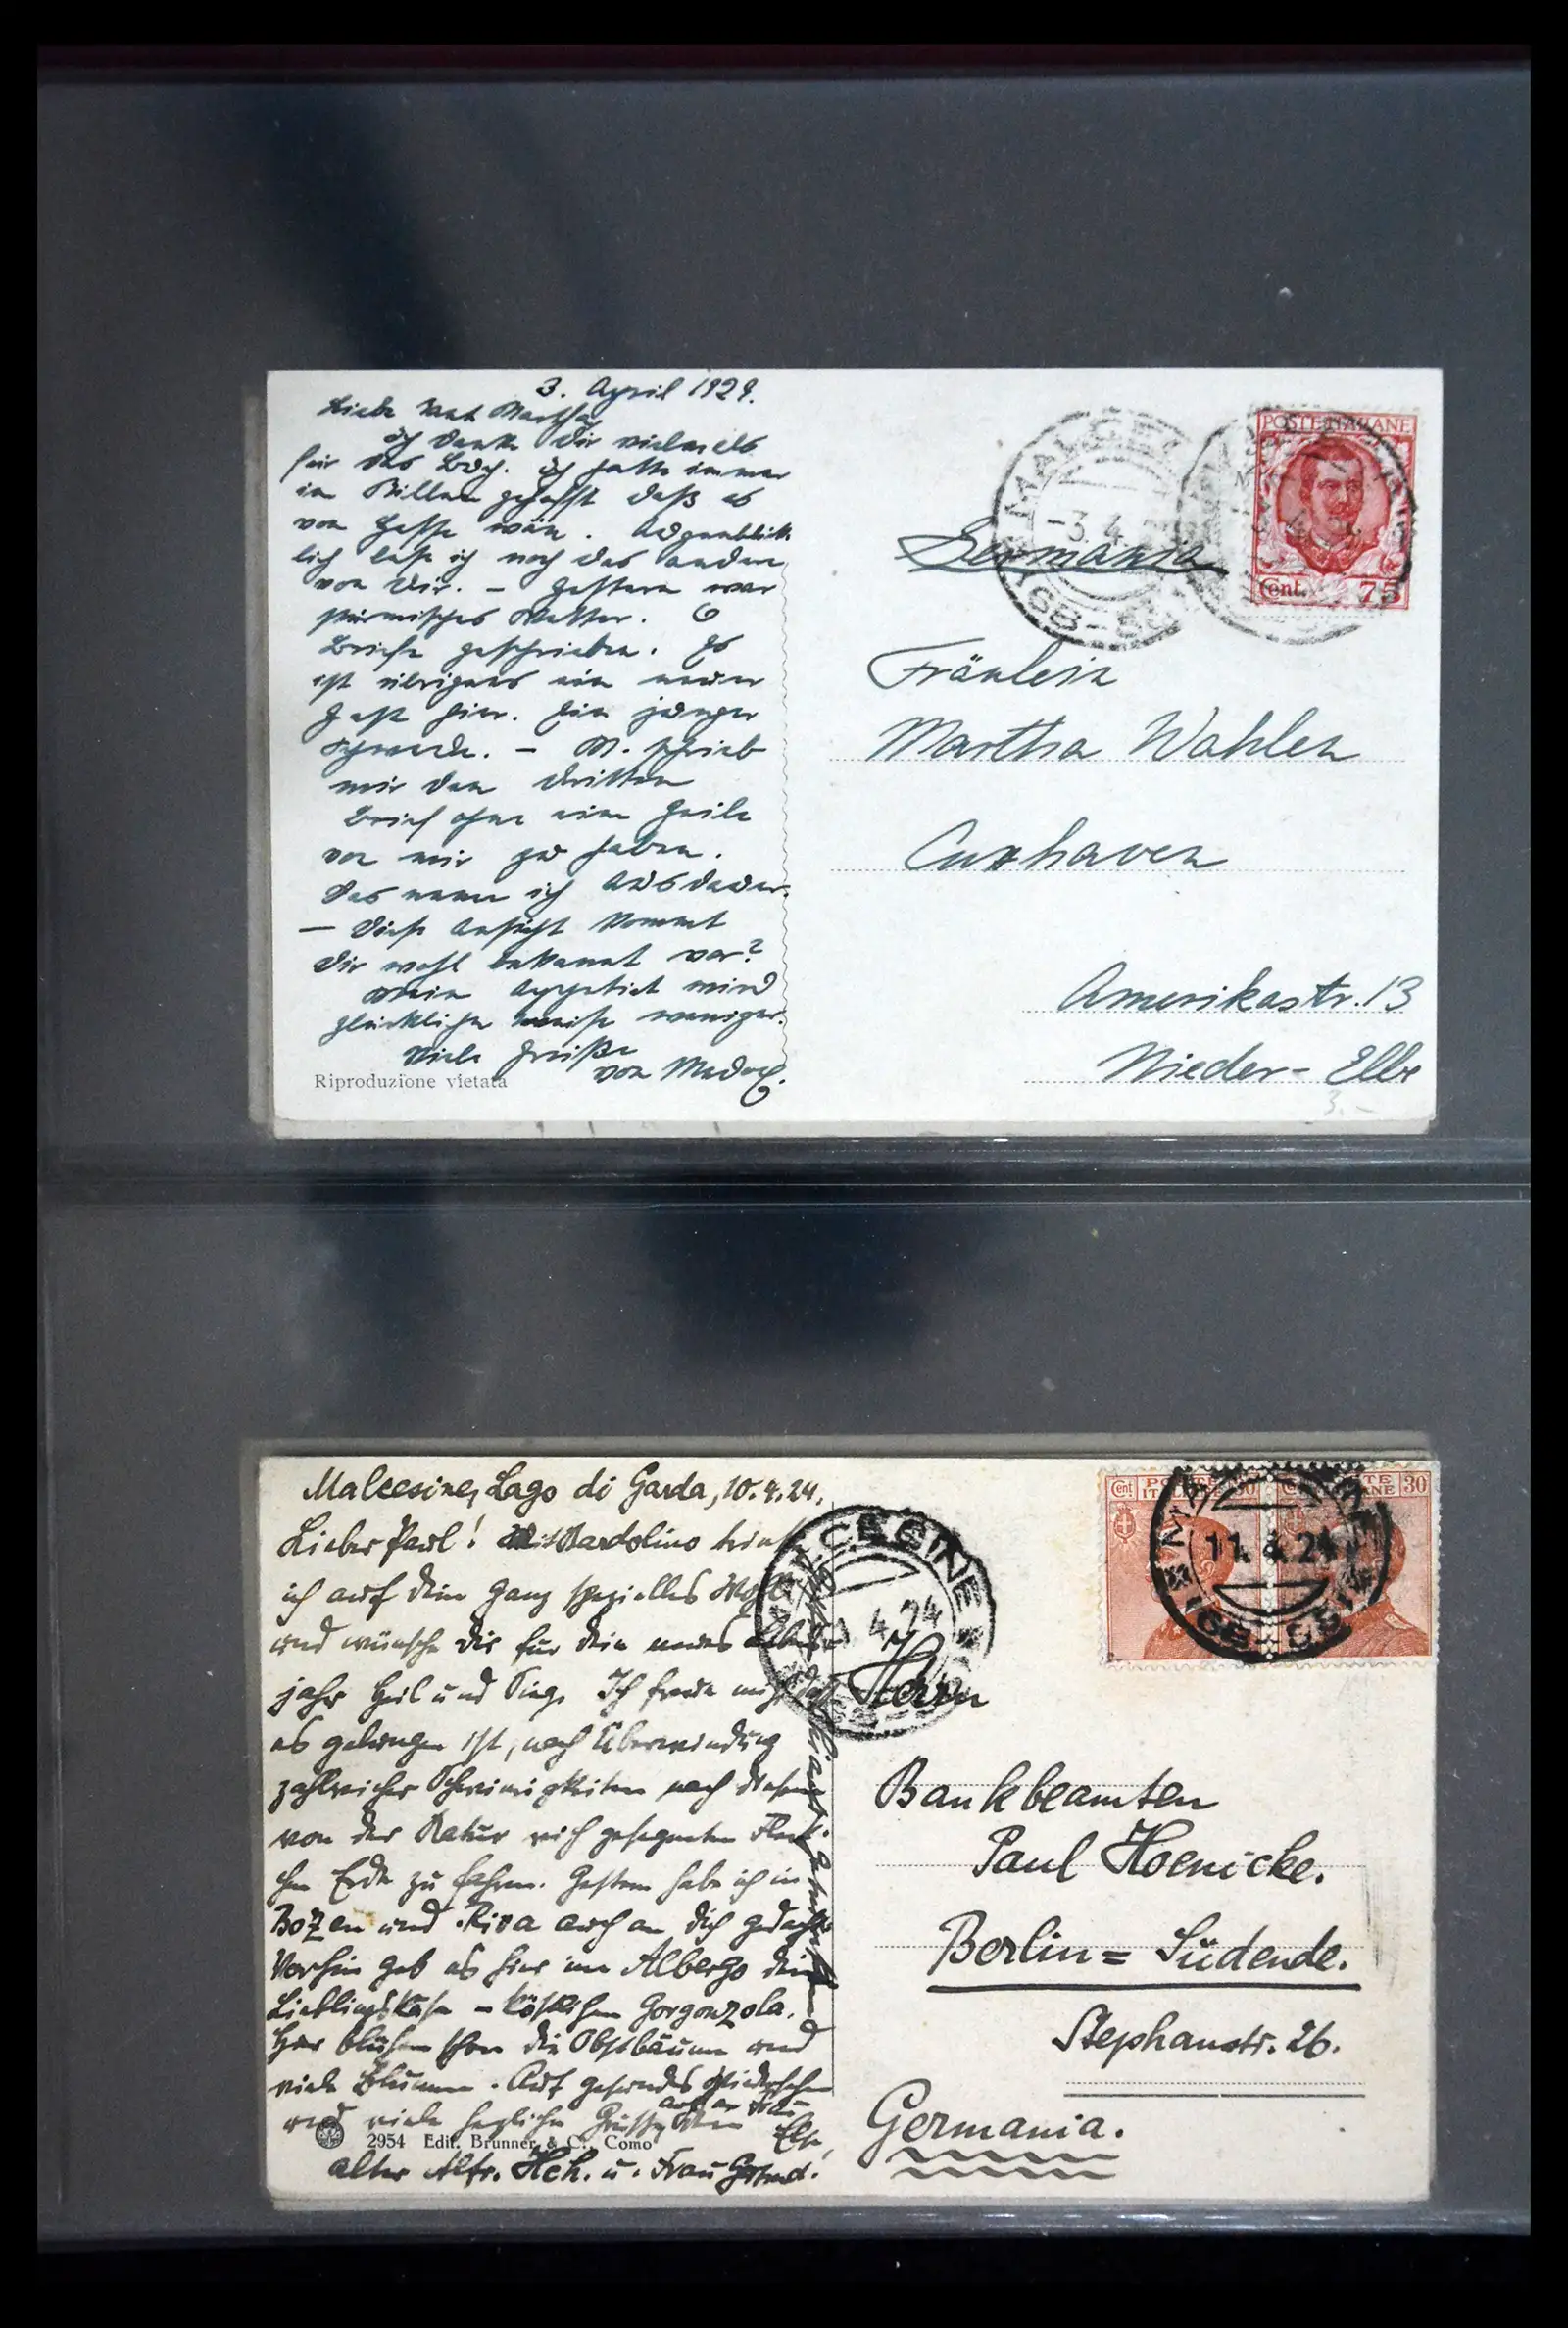 3. April 1929.
Liebe Tant Martha,
ich danke Dir vielmels
für das Buch. Ich hatte immer
im Stillen gehofft daß es
von Hesse wäre. Augenblick
lich lese ich noch das andere
von Dir. — Gestern war
stürmisches Wetter. 6
Briefe geschrieben. Es
ist übrigens ein neuer
Gast hier. Ein junger
Schwede. — M. schrieb
mir den dritten
Brief ohne eine Zeile
von mir zu haben.
Das nenn ich Ausdauer.
— Diese Ansicht kommt
Dir wohl bekannt vor?
Mein Appetit wird
glücklicher weise weniger.
Viele Grüße
von
Riproduzione vietata
POSTE ITALIANE
Cent. 75
MALCESINE
-3.4.
Germania
Fräulein
Martha Wahlen
Cuxhaven
Amerikastr. 13
Nieder-Elbe
3.-
Malcesine, Lago di Garda, 10.4.24.
Lieber Paul! Mit Bardolino trinke
ich auf Dein ganz spezielles Wohl
und wünsche Dir für Dein neues Lebens-
jahr Heil und Sieg. Ich freue mich, daß
es gelungen ist, nach Überwindung
zahlreicher Schwierigkeiten nach diesem
von der Natur reich gesegneten Fleck-
chen Erde zu fahren. Gestern habe ich in
Bozen und Riva auch an Dich gedacht.
Vorhin gab es hier im Albergo Dein
Lieblingskäse - köstlichen Gorgonzola.
Hier blühen schon die Obstbäume und
viele Blumen. Auf gesundes Wiedersehen
und viele herzliche Grüsse, auch an Frau
Else, Dein
alter Alfr. Hch. u. Frau
2954 Edit. Brunner & C., Como
MALCESINE
4.24
Cent 30
POSTE ITALIANE
11.4.24
Herrn
Bankbeamten
Paul Hoenicke.
Berlin = Südende.
Stephanstr. 26.
Germania.